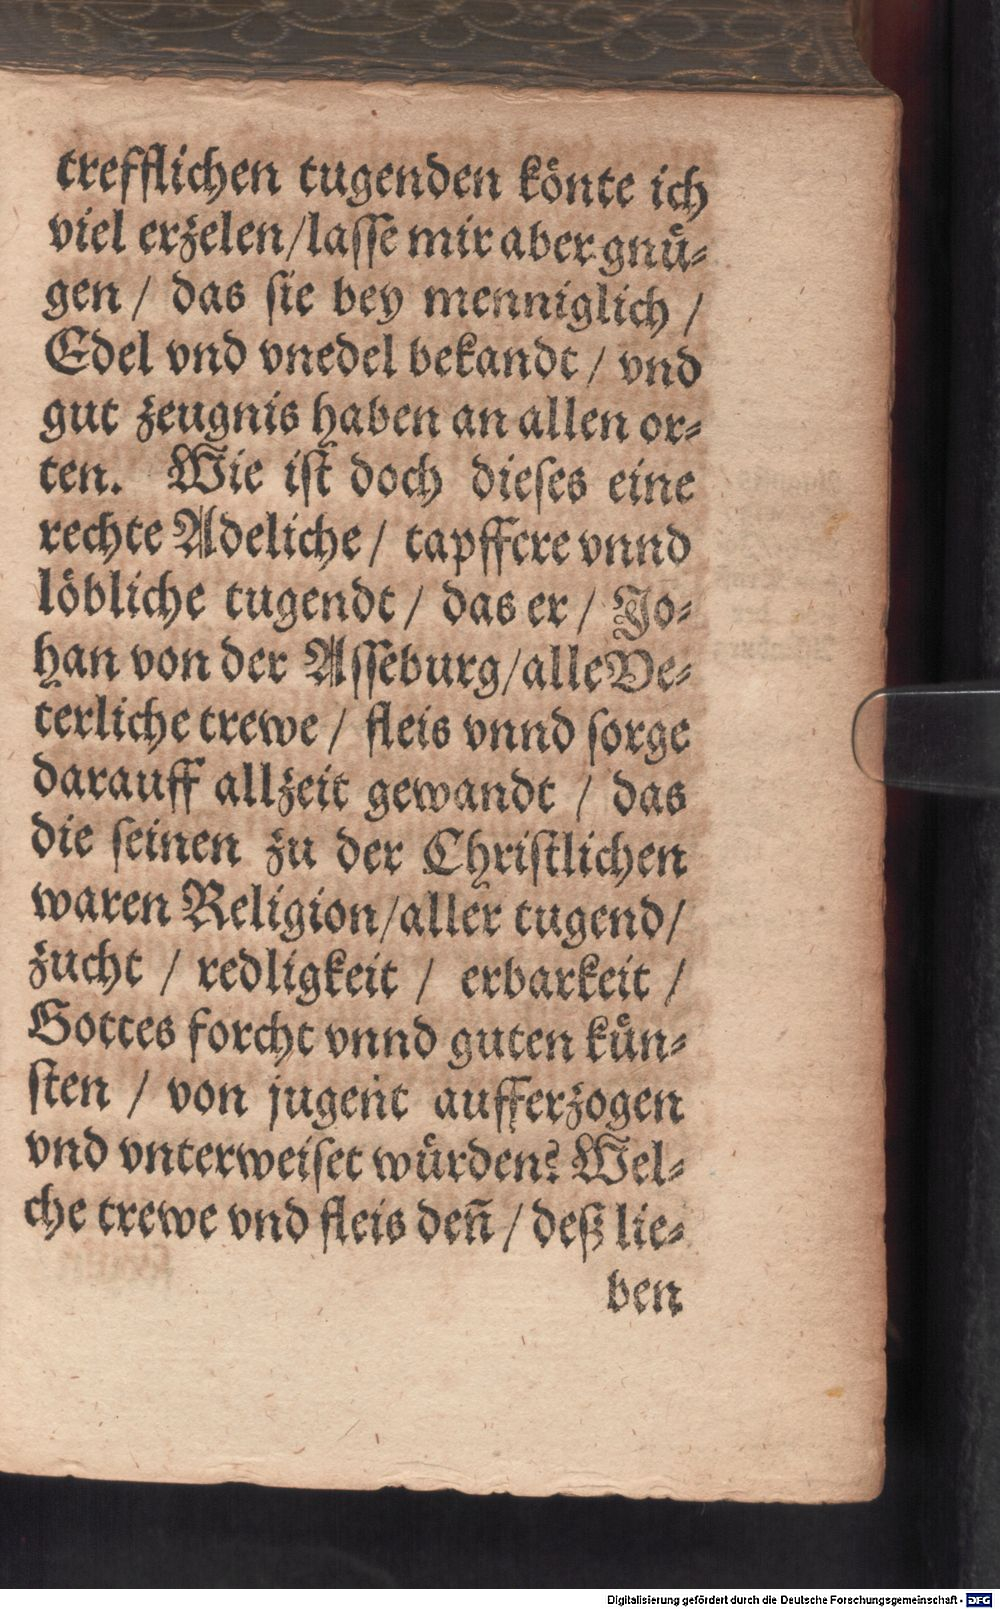 trefflichen tugenden könte ich
viel erzelen/lasse mir aber gnü-
gen / das sie bey menniglich /
Edel vnd vnedel bekandt / vnd
gut zeugnis haben an allen or-
ten. Wie ist doch dieses eine
rechte Adeliche / tapffere vnnd
löbliche tugendt / das er / Jo-
han von der Asseburg/alle Ve-
terliche trewe / fleis vnnd sorge
darauff allzeit gewandt / das
die seinen zu der Christlichen
waren Religion/aller tugend/
zucht / redligkeit / erbarkeit /
Gottes forcht vnnd guten kün-
sten / von jugent aufferzogen
vnd vnterweiset würden? Wel-
che trewe vnd fleis den̄ / deß lie-
ben
Digitalisierung gefördert durch die Deutsche Forschungsgemeinschaft - DFG